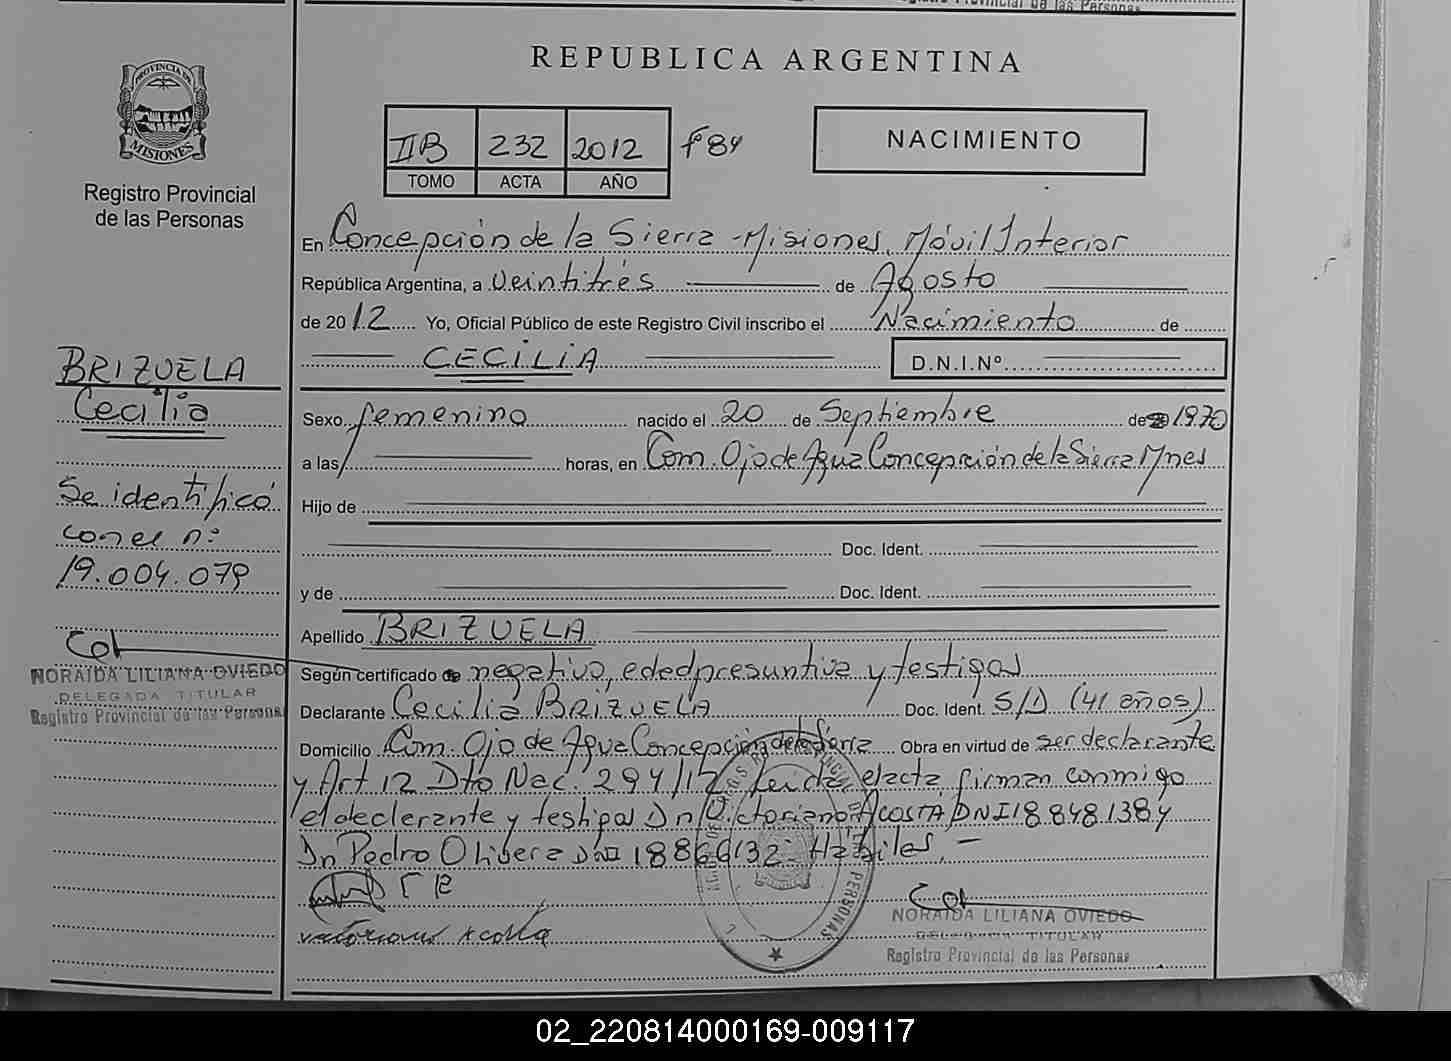 Registro Provincial de las Personas
REPUBLICA ARGENTINA
PROVINCIA DE
MISIONES
Registro Provincial
de las Personas
IIB 232 2012 Fº 84
TOMO ACTA AÑO
NACIMIENTO
En Concepción de la Sierra - Misiones, Móvil Interior
República Argentina, a veintitrés de Agosto
de 2012 Yo, Oficial Público de este Registro Civil inscribo el Nacimiento de
CECILIA D.N.I.Nº
BRIZUELA
Cecilia
Se identificó
con el nº
19.004.079
NORAIDA LILIANA OVIEDO
DELEGADA TITULAR
Registro Provincial de las Personas
Sexo femenino nacido el 20 de Septiembre de 1970
a las horas, en Com. Ojo de Agua Concepción de la Sierra Mnes
Hijo de
Doc. Ident.
y de Doc. Ident.
Apellido BRIZUELA
Según certificado de negativo, edad presuntiva y testigos
Declarante Cecilia BRIZUELA Doc. Ident. S/D (41 años)
Domicilio Com. Ojo de Agua Concepción de la Sierra Obra en virtud de ser declarante
y Art 12 Dto Nac. 294/12 Leida el acta firman conmigo
el declarante y testigos Dn Victoriano ACOSTA DNI 18.848.138 y
Dn Pedro Olivera DNI 18866132 Hábiles. -
Acosta
NORAIDA LILIANA OVIEDO
DELEGADA TITULAR
Registro Provincial de las Personas
02_220814000169-009117